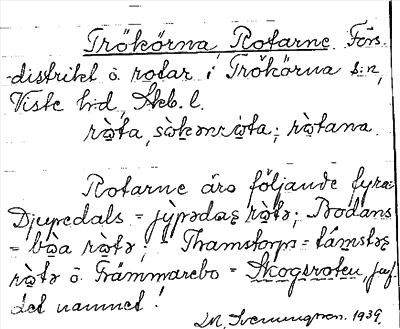 Trökörna Rotarne. Förs.
-distrikt o. rotar i Trökörna s:n,
Viste h:d, Skb. l.
rὼta, sὼkənrὼta; rὼtana.
Rotarne äro följande fyra:
Djupedals = jỳpədaʟs rὼtə; Bodans
= bὼa rὼtə; - Thamstorps =
rὼtə o. Främmarebo = Skogsroten, jaf
det namnet!
M. Svenningson. 1939.